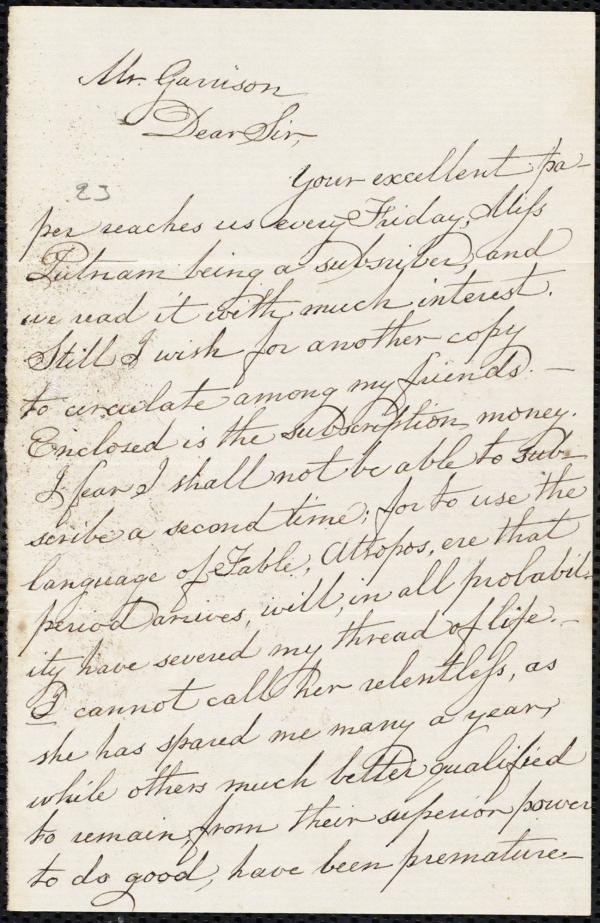 Mr. Garrison
Dear Sir,
Your excellent pa-
23
per reaches us every Friday, Miss
Putnam being a subsriber, and
we read it with much interest.
Still I wish for another copy
to circulate among my friends. —
Enclosed is the subscription money.
I fear I shall not be able to sub-
scribe a second time; for to use the
language of Fable, Atropos, ere that
period arrives, will, in all probabil-
ity have severed my thread of life. —
I cannot call her relentless, as
she has spared me many a year,
while others much better qualified
to remain, from their superior power
to do good, have been premature-